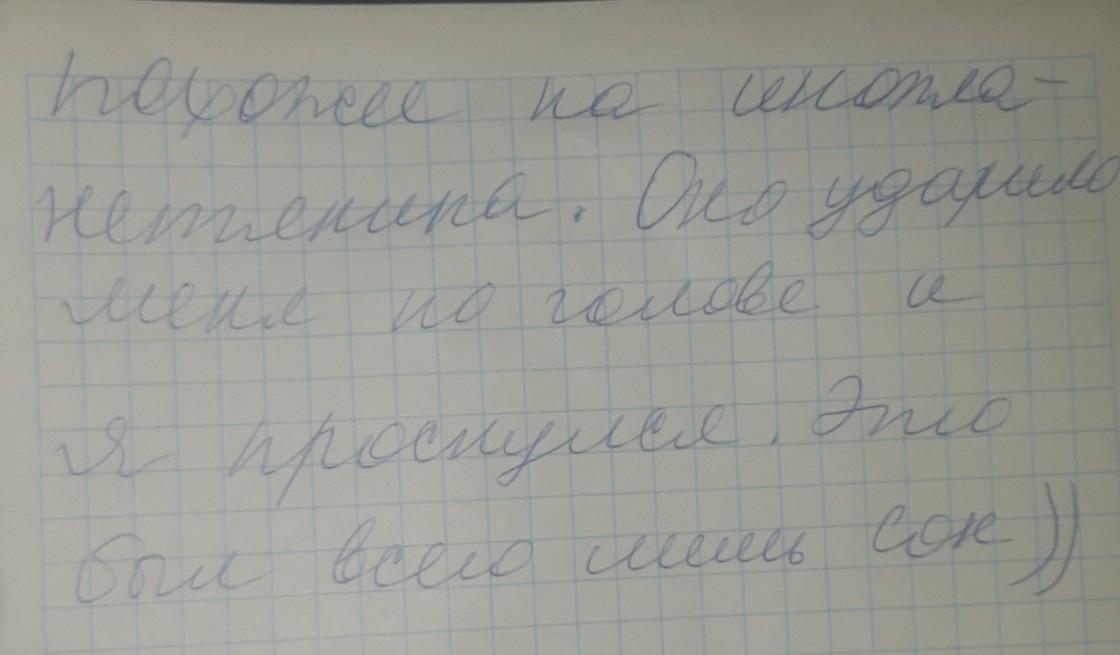 похожее на инопла-
нетянина. Оно ударило
меня по голове и
я проснулся. Это
был всего лишь сон))